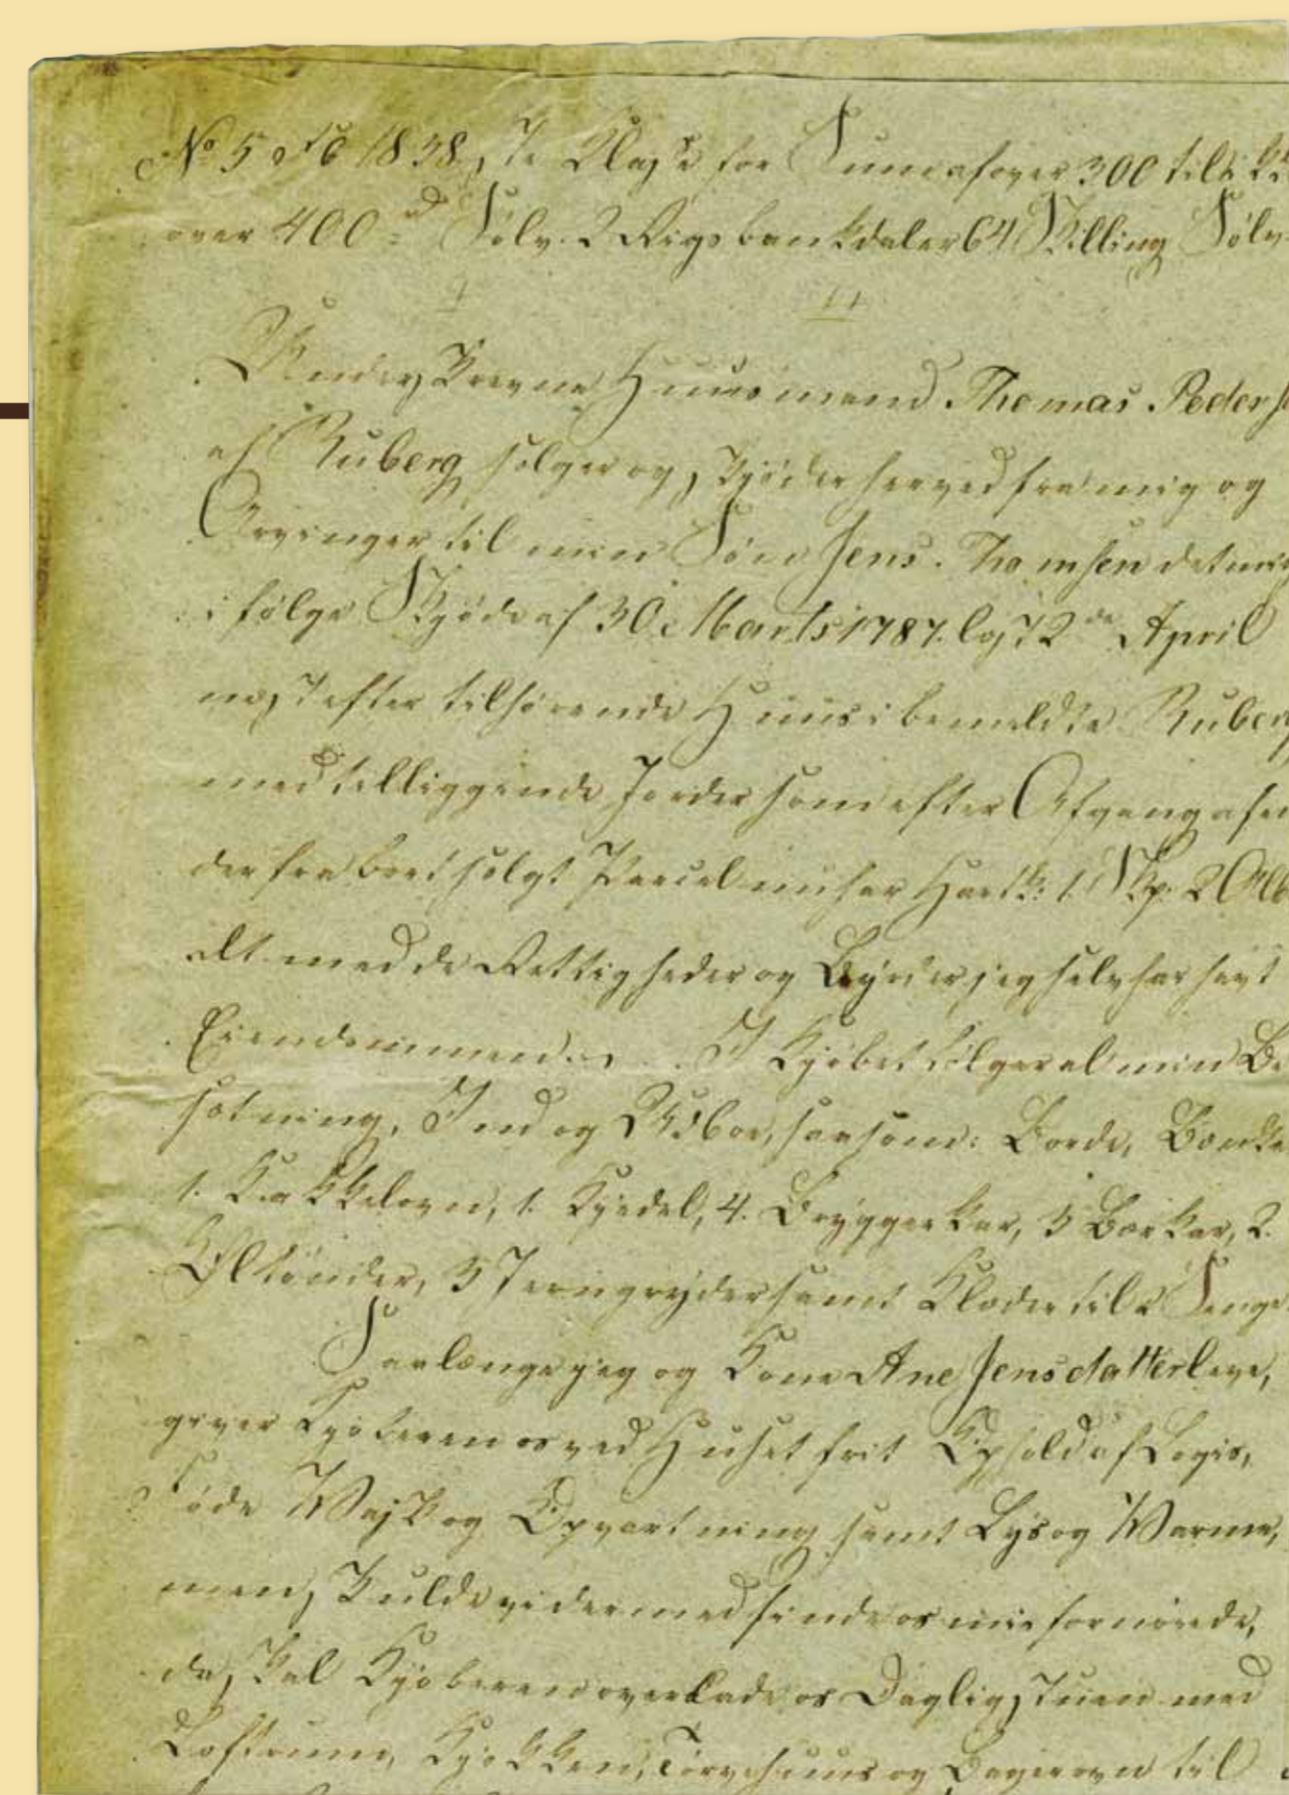 No 5 1838, 1te Klasse for Summa af over 300 til
over 400 rd Sølv. 2 Rigsbankdaler 64 Skilling Sølv
Underskrevne Huusmand Thomas Peders
af Ruberg sælger og skjøder herved fra mig og
Arvinger til min Søn Jens Thomsen det mig
i følge Skjøde af 30 Marts 1787. læst 2den April
næst efter tilhørende Huus i bemeldte Ruberg
med tilliggende Jorder som efter Afgang af en
derfra bortsolgt Parcel nu har Hartk: 1. Skp. 2 Alb
alt med de Rettigheder og Byrder jeg selv har havt
Eiendommen. I Kjøbet følger al min Be
sætning, Ind og Udboe, saasom: Borde, Bænke
1. Kakkelovn, 1. Kjedel, 4. Bryggerkar, 3 Kar, 2.
Øltønder, 3 Jerngryder samt Klæder til 2 Senge
Saalænge jeg og Kone Ane Jensdatter leve,
giver Kjøberen os ved Huset frit Ophold af Logis,
Føde Wask og Opvartning samt Lys og Warme,
men skulde vi dermed finde os misfornøiede,
da skal Kjøberen overlade os Dagligstuen med
Loftrum, Kjøkken, Tørvehuus og Bagerovn til